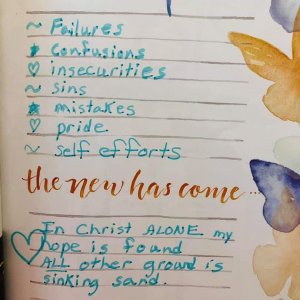 ~ Failures
★ Confusions
♡ insecurities
~ sins
★ mistakes
♡ pride.
~ self efforts
the new has come...
In Christ ALONE my
hope is found
ALL other ground is
sinking sand.